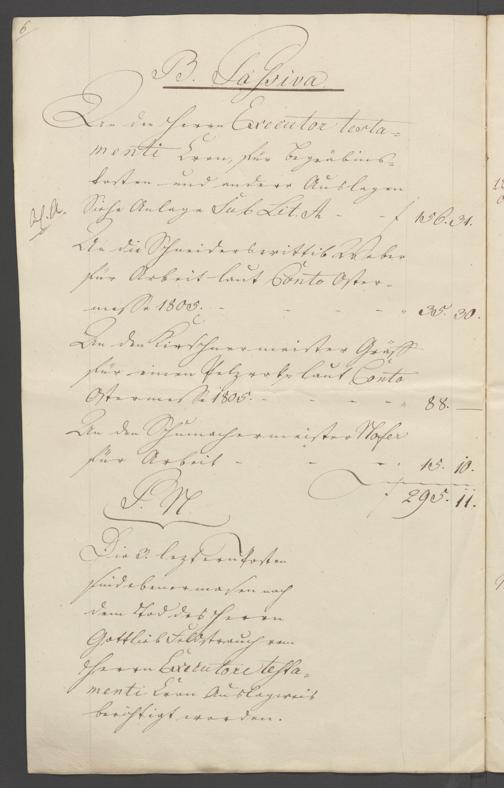 6
B. Passiva.
An den Herrn Executor testa=
menti Kron, für Begräbnis=
kosten und andere Auslagen
Siehe Anlage Sub Lit. A - - f 156. 31.
An die Schneiderswittib Weber
für Arbeit laut Conto Oster=
messe 1805. - - - - " 35. 30.
An den Kirschnermeister Gräff
für einen Pelzrock laut Conto
Ostermesse 1805. - - - - " 88. —
An den Schumachermeister Hofer
für Arbeit - - - " 15. 10.
f 295. 11.
P. N
Die 3. leztern Posten
sind ebenermasen nach
dem Tod des Herrn
Gottlieb Feldstrauch vom
Herrn Executore testa=
menti Kron Auslagweis
berichtigt worden.